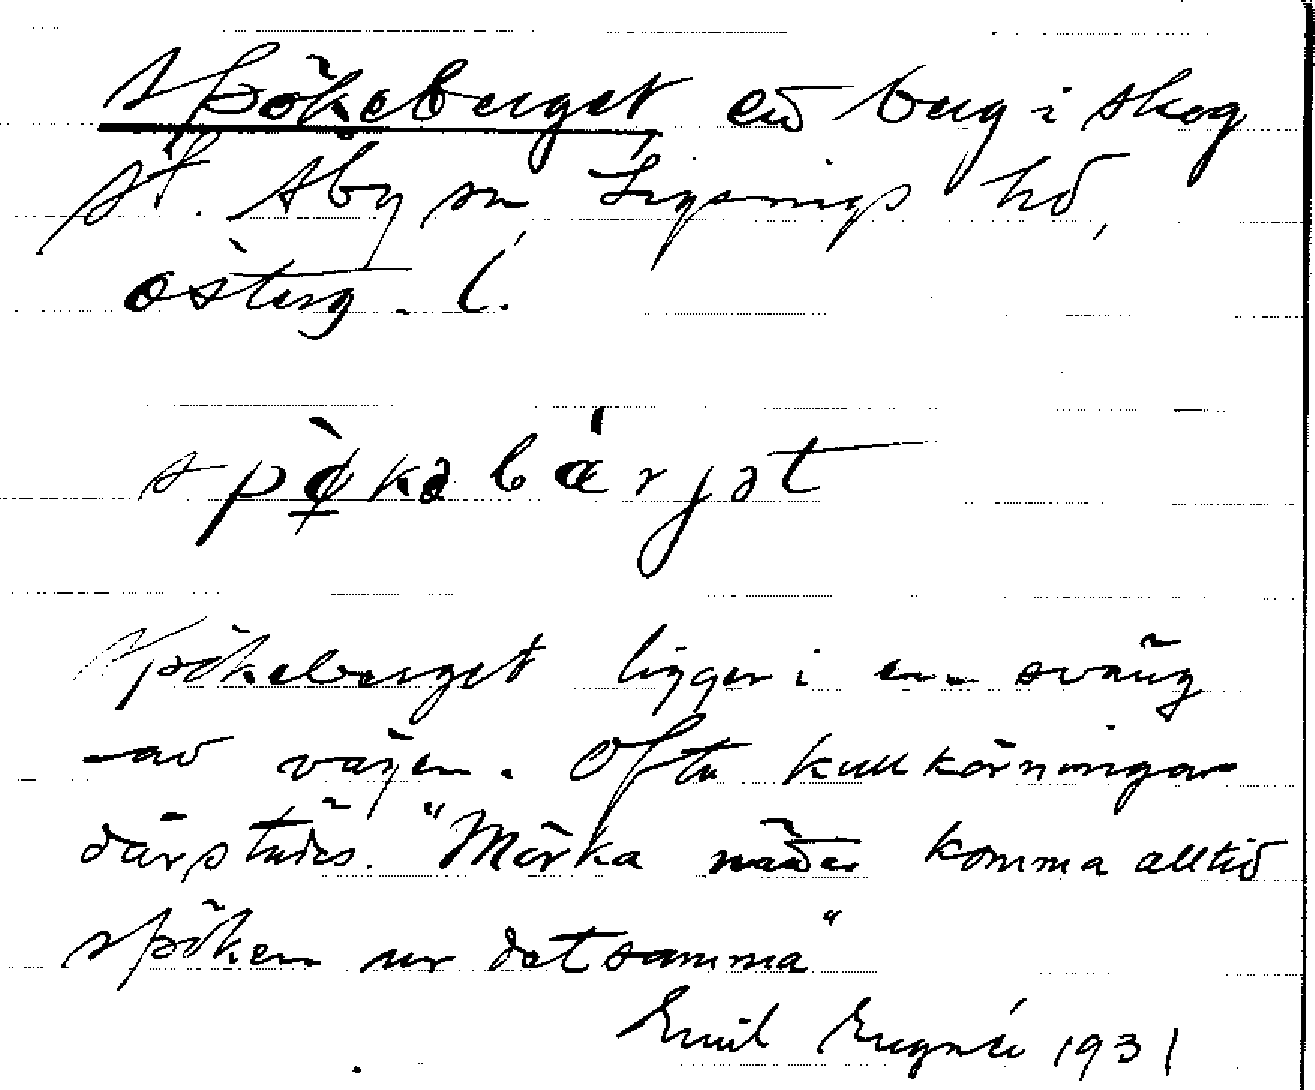 Spökeberget ett berg i skog
St. Åby sn Lysings hd,
Österg. l.
spø̀kəbǽrjət
Spökeberget ligger i en sväng
av vägen. Ofta kullkörningar
därstädes. "Mörka nätter komma alltid
spöken ur detsamma"
Emil 1931